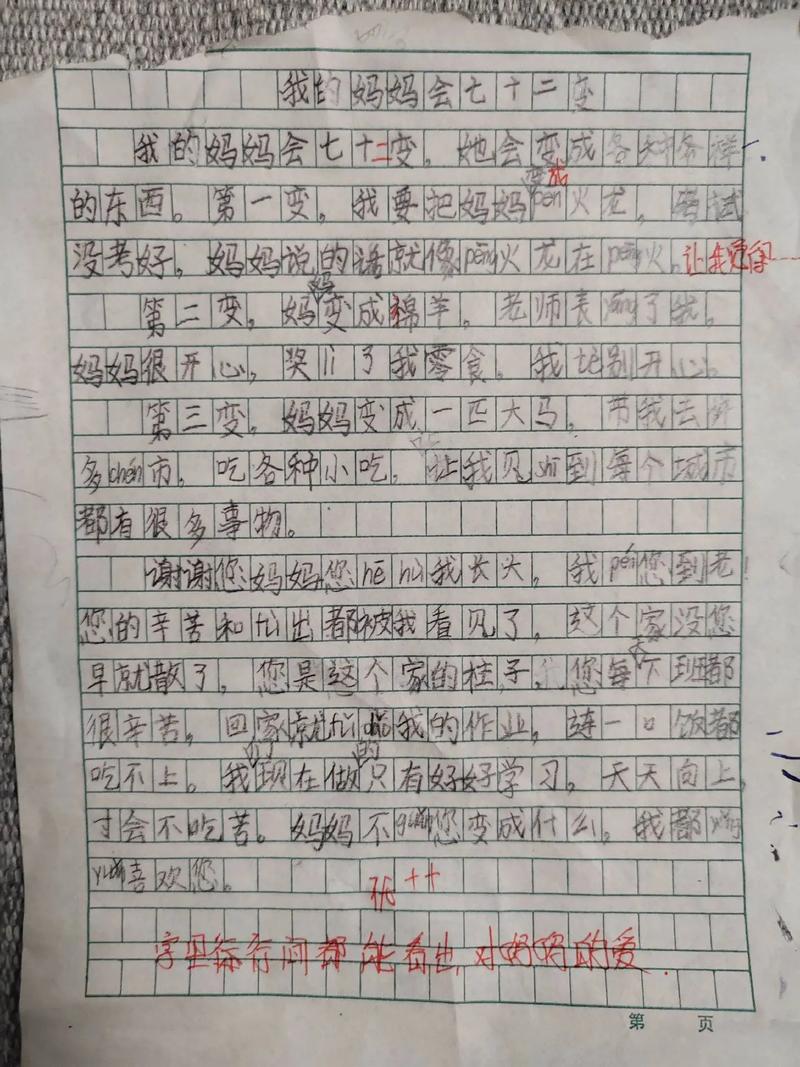 我的妈妈会七十二变
我的妈妈会七十二变，她会变成各种各样
变成
的东西。第一变，我要把妈妈pēn火龙，考试
没考好，妈妈说的话就像pēn火龙在pēn火。让我觉得
妈
第二变，妈变成绵羊。老师表yáng了我。
妈妈很开心，奖lì了我零食。我特别开心。
第三变，妈妈变成一匹大马，带我去许
多chén市，吃各种小吃，让我见shi到每个城市
都有很多事物。
péi
谢谢您妈妈您hē hù我长大，我péi您到老！
您的辛苦和fù出都被我看见了，这个家没您
天
早就散了，您是这个家的柱子，您每下班都
很辛苦。回家就fǔ dǎo我的作业，连一口饭都
们 的
吃不上。我现在做只有好好学习，天天向上，
才会不吃苦。妈妈不guǎn您变成什么，我都yǒng
yuǎn喜欢您。
优++
字里行间都能看出，对妈妈的爱。
第 页